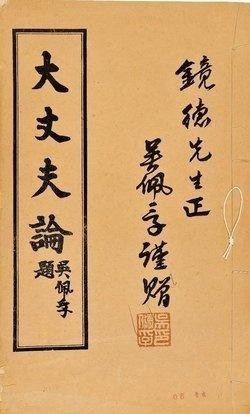 鏡德先生正
吳佩孚謹贈
大丈夫論
吳佩孚題